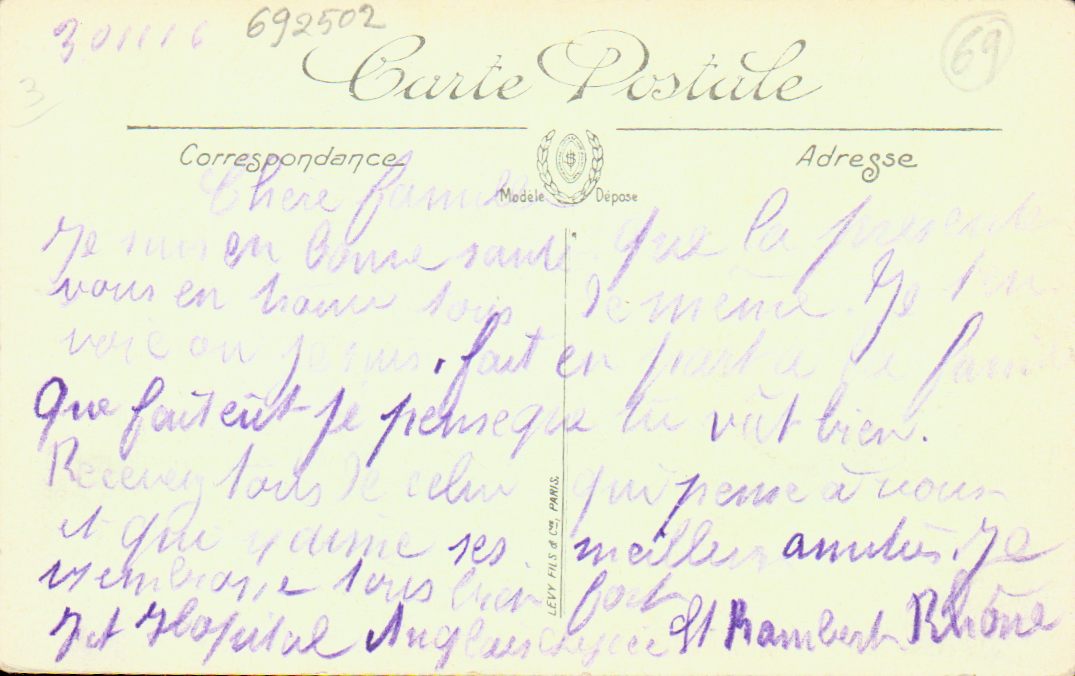 301116 692502 69
3
Carte Postale
Correspondance Adresse
Modèle Déposé
Chère famille
Je suis en bonne santé. Que la présente
vous en trouve tous de même. Je t'en
voie ou je suis. fait en part a la famille
Que fait eût je pense que tu vût bien.
Recevez tous de celui qui pense à vous
et qui aime ses meilleurs amitiés. Je
embrasse tous bien fort
Hopital Anglais St Rambert Rhône
LEVY FILS & Cie, PARIS.